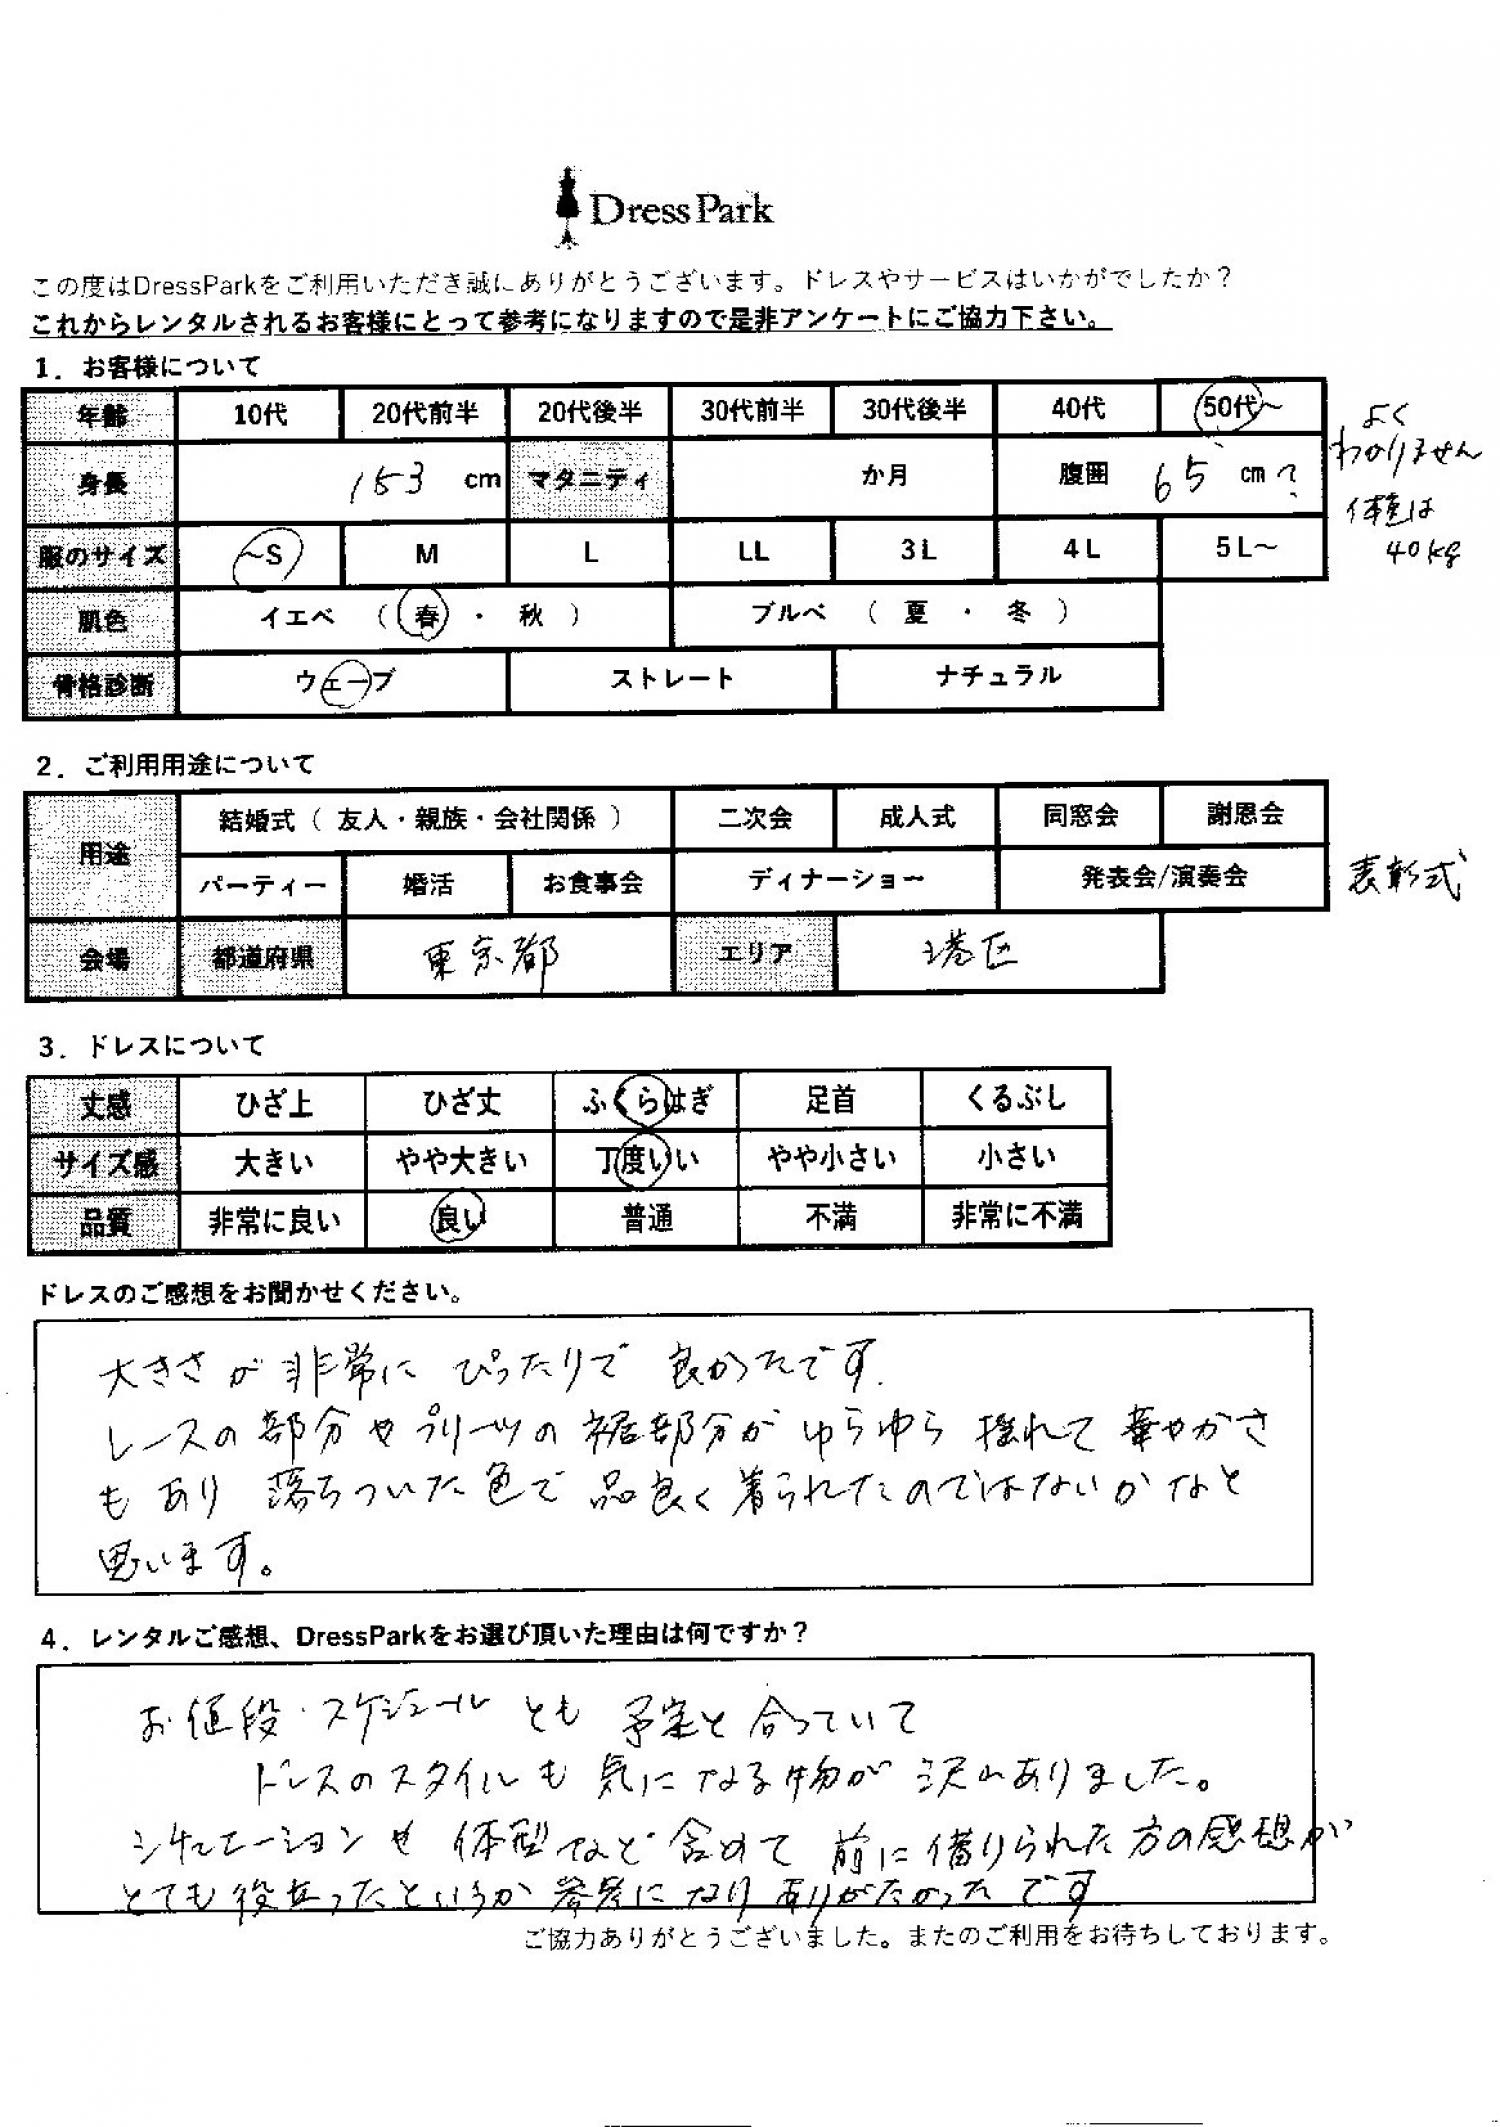 DressPark
この度はDressParkをご利用いただき誠にありがとうございます。ドレスやサービスはいかがでしたか？
これからレンタルされるお客様にとって参考になりますので是非アンケートにご協力下さい。
1．お客様について
年齢 10代 20代前半 20代後半 30代前半 30代後半 40代 50代～
よく
わかりません
身長 153 cm マタニティ か月 腹囲 65 cm ?
体重は
40kg
服のサイズ ～S M L LL 3L 4L 5L～
肌色 イエベ （ 春 ・ 秋 ） ブルベ （ 夏 ・ 冬 ）
骨格診断 ウェーブ ストレート ナチュラル
2．ご利用用途について
用途 結婚式（ 友人・親族・会社関係 ） 二次会 成人式 同窓会 謝恩会
パーティー 婚活 お食事会 ディナーショー 発表会/演奏会 表彰式
会場 都道府県 東京都 エリア 港区
3．ドレスについて
丈感 ひざ上 ひざ丈 ふくらはぎ 足首 くるぶし
サイズ感 大きい やや大きい 丁度いい やや小さい 小さい
品質 非常に良い 良い 普通 不満 非常に不満
ドレスのご感想をお聞かせください。
大きさが非常に ぴったりで 良かったです.
レースの部分やプリーツの裾部分がゆらゆら揺れて華やかさ
もあり 落ちついた色で品良く着られたのではないかなと
思います。
4．レンタルご感想、DressParkをお選び頂いた理由は何ですか？
お値段・スケジュールとも 予定と合っていて
ドレスのスタイルも気になる物が沢山ありました。
シチュエーションや体型など含めて前に借りられた方の感想が
とても役立ったというか参考になりありがたかったです
ご協力ありがとうございました。またのご利用をお待ちしております。